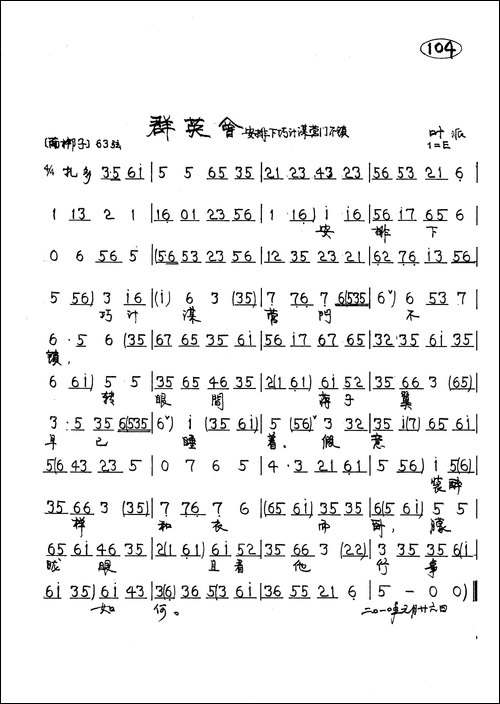 104
群英会 安排下巧计谋营门不锁
〔南梆子〕63弦 叶派
1=E
4/4 扎多 35 6i | 5 5 65 35 | 21 23 43 23 | 56 53 21 6 |
1 13 2 1 | 16 01 23 56 | 1 16) i i6 | 56 i7 65 6 |
安 排 下
0 6 56 5 | (56 53 23 56 | 12 35 23 21 | 62 76 i3 56 |
5 56) 3 i6 | (i) 6 3 (35) | 7 76 7 6(535 | 6ˇ) 6 53 7 |
巧 计 谋 营 门 不
6 · 5 6 (35 | 67 65 35 6i | 56 i7 67 65 | 32 35 6i 35 |
锁，
6 6i) 5 5 | 35 65 46 35 | 2(1 61) 6i 52 | 35 66 3 (65) |
转 眼 间 蒋 子 翼
3 · 5 35 6(535 | 6ˇ) i (35 6i) | 5 (56)ˇ 3 32 | 35 i(7) 65 6i |
早 已 睡 着。 假 意
5(6 43 23 5 | 0 7 6 5 | 4 · 3 21 61 | 5 56) i 5(6) |
装 醉
35 66 3 (35) | 7 76 7 6 | (65 6i) 35 35 | 6(5 6i) 5 5 |
样 和 衣 而 卧， 朦
65 6i 46 35 | 2(1 61) 6i 52 | 35 66 3 (22) | 3 35 35 6(i |
胧 眼 且 看 他 行 事
6i 35) 6i 43 | 3(6) 36 5(3 6i | 36 55 21 6 | 5 – 0 0) ‖
如 何。 二〇一〇年元月廿六日